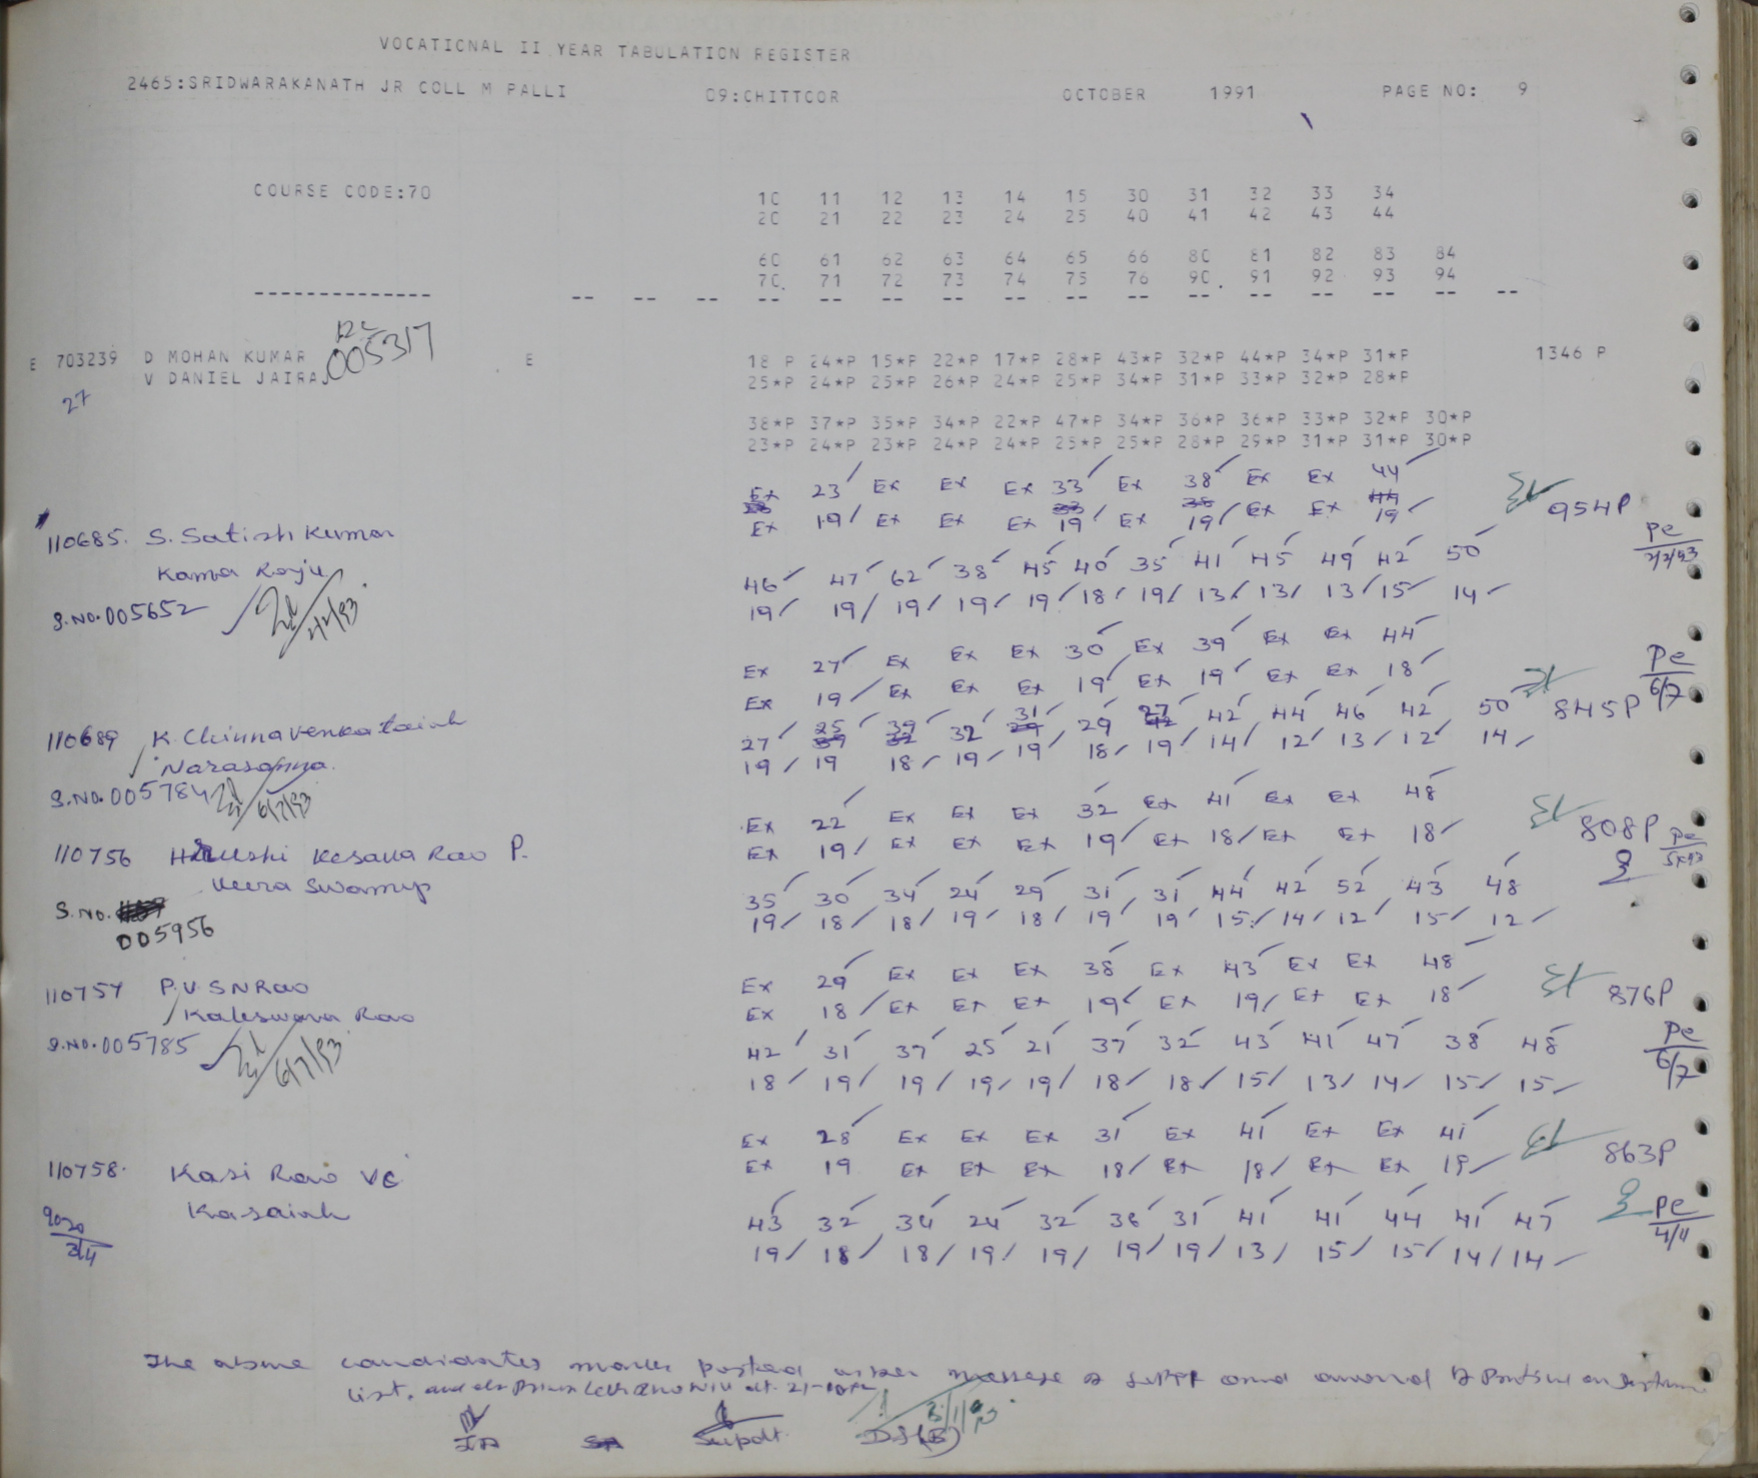 VOCATICNAL II YEAR TABULATION REGISTER
2465:SRIDWARAKANATH JR COLL M PALLI 09:CHITTCOR OCTOBER 1991 PAGE NO: 9
COURSE CODE:70 1C 11 12 13 14 15 30 31 32 33 34
2C 21 22 23 24 25 40 41 42 43 44
6C 61 62 63 64 65 66 8C 81 82 83 84
7C. 71 72 73 74 75 76 9C. 91 92 93 94
-------------- -- -- -- -- -- -- -- -- -- -- -- -- -- -- -- --
005317
E 703239 D MOHAN KUMAR E 18 P 24*P 15*P 22*P 17*P 28*P 43*P 32*P 44*P 34*P 31*P 1346 P
V DANIEL JAIRAJ 25*P 24*P 25*P 26*P 24*P 25*P 34*P 31*P 33*P 32*P 28*P
27
38*P 37*P 35*P 34*P 22*P 47*P 34*P 36*P 36*P 33*P 32*P 30*P
23*P 24*P 23*P 24*P 24*P 25*P 25*P 28*P 29*P 31*P 31*P 30*P
Ex 23 Ex Ex Ex 33 Ex 38 Ex Ex 44
Ex 19 Ex Ex Ex 19 Ex 19 Ex Ex 19 954P
110685. S. Satish Kumar
Kama Raju
46 47 62 38 45 40 35 41 45 49 42 50
19 19 19 19 19 18 19 13 13 13 15 14
S.No. 005652
Ex 27 Ex Ex Ex 30 Ex 39 Ex Ex 44
Ex 19 Ex Ex Ex 19 Ex 19 Ex Ex 18
110689 K Chinna venkataiah
Narasanna.
27 25 39 32 31 29 27 42 44 46 42 50 845P
19 19 18 19 19 18 19 14 12 13 12 14
S.No. 005784 6/7/93
Ex 22 Ex Ex Ex 32 Ex 41 Ex Ex 48
Ex 19 Ex Ex Ex 19 Ex 18 Ex Ex 18 808P
110756 Hrushi Kesava Rao P.
Veera Swamy
35 30 34 24 29 31 31 44 42 52 43 48
19 18 18 19 18 19 19 15 14 12 15 12
S.No.
005956
Ex 29 Ex Ex Ex 38 Ex 43 Ex Ex 48
Ex 18 Ex Ex Ex 19 Ex 19 Ex Ex 18 876P
110757 P.V S N Rao
Kaleswara Rao
42 31 37 25 21 37 32 43 41 47 38 48
18 19 19 19 19 18 18 15 13 14 15 15
S.No. 005785 6/7/93
Pe
6/7
Ex 28 Ex Ex Ex 31 Ex 41 Ex Ex 41
Ex 19 Ex Ex Ex 18 Ex 18 Ex Ex 19 863P
110758. Kasi Rao VC
Kasaiah
43 32 34 24 32 36 31 41 41 44 41 47
19 18 18 19 19 19 19 13 15 15 14 14
Pe
4/11
The above candidates marks posted
list. and
Supdt.